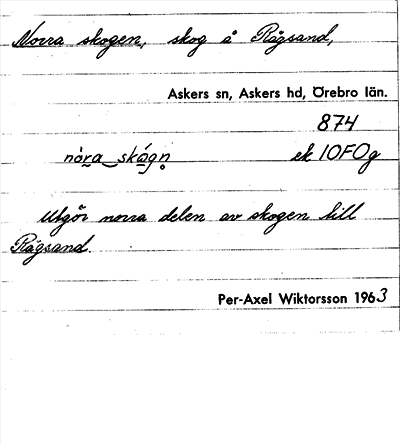 Norra skogen, skog å Rågsand,
Askers sn, Askers hd, Örebro län.
874
nò̀ra skógn̥ ek 10F0g
Utgör norra delen av skogen till
Rågsand.
Per-Axel Wiktorsson 1963